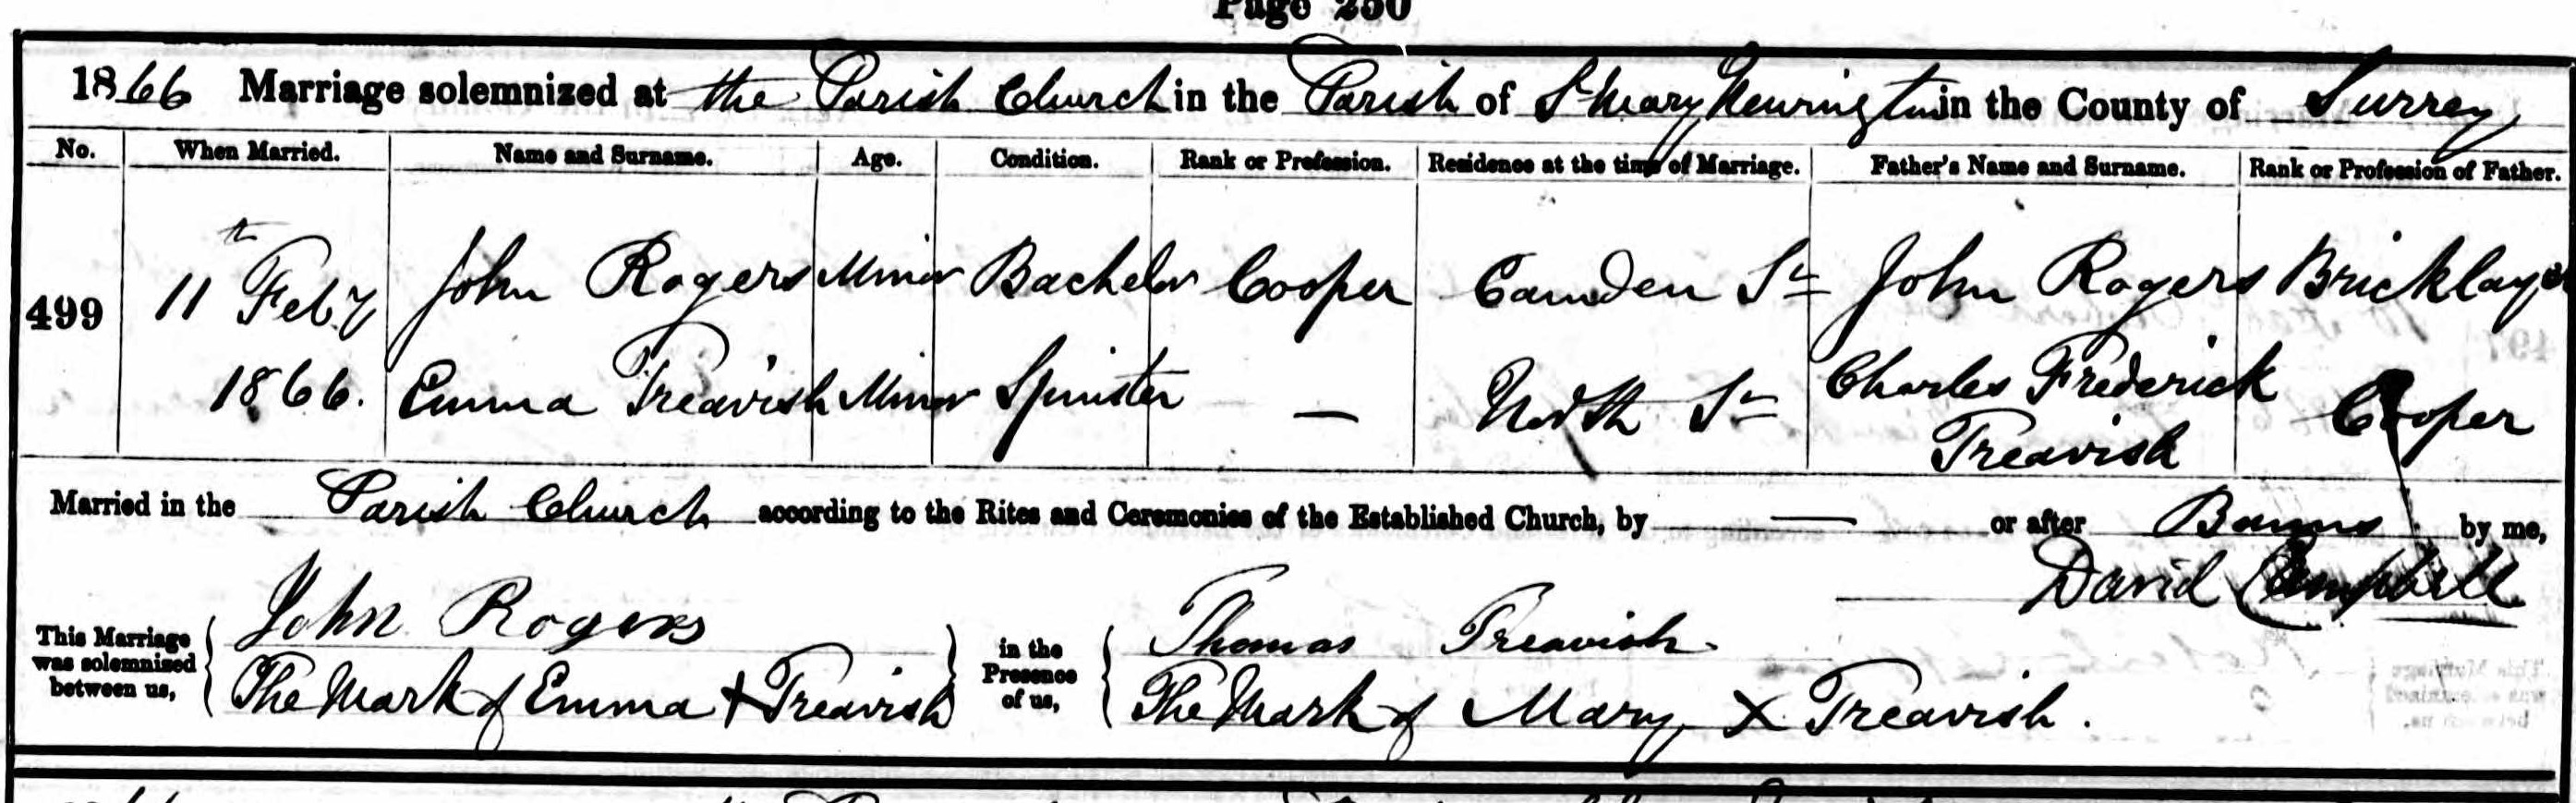 Page 250
1866 Marriage solemnized at the Parish Church in the Parish of St Mary Newington in the County of Surrey
No. When Married. Name and Surname. Age. Condition. Rank or Profession. Residence at the time of Marriage. Father's Name and Surname. Rank or Profession of Father.
499 11th Feby John Rogers Minor Bachelor Cooper Camden St John Rogers Bricklayer
1866. Emma Treavish Minor Spinster — North St Charles Frederick Cooper
Treavish
Married in the Parish Church according to the Rites and Ceremonies of the Established Church, by — or after Banns by me,
David Campbell
This Marriage was solemnized between us, John Rogers in the Presence of us, Thomas Treavish
The Mark of Emma + Treavish The Mark of Mary X Treavish.